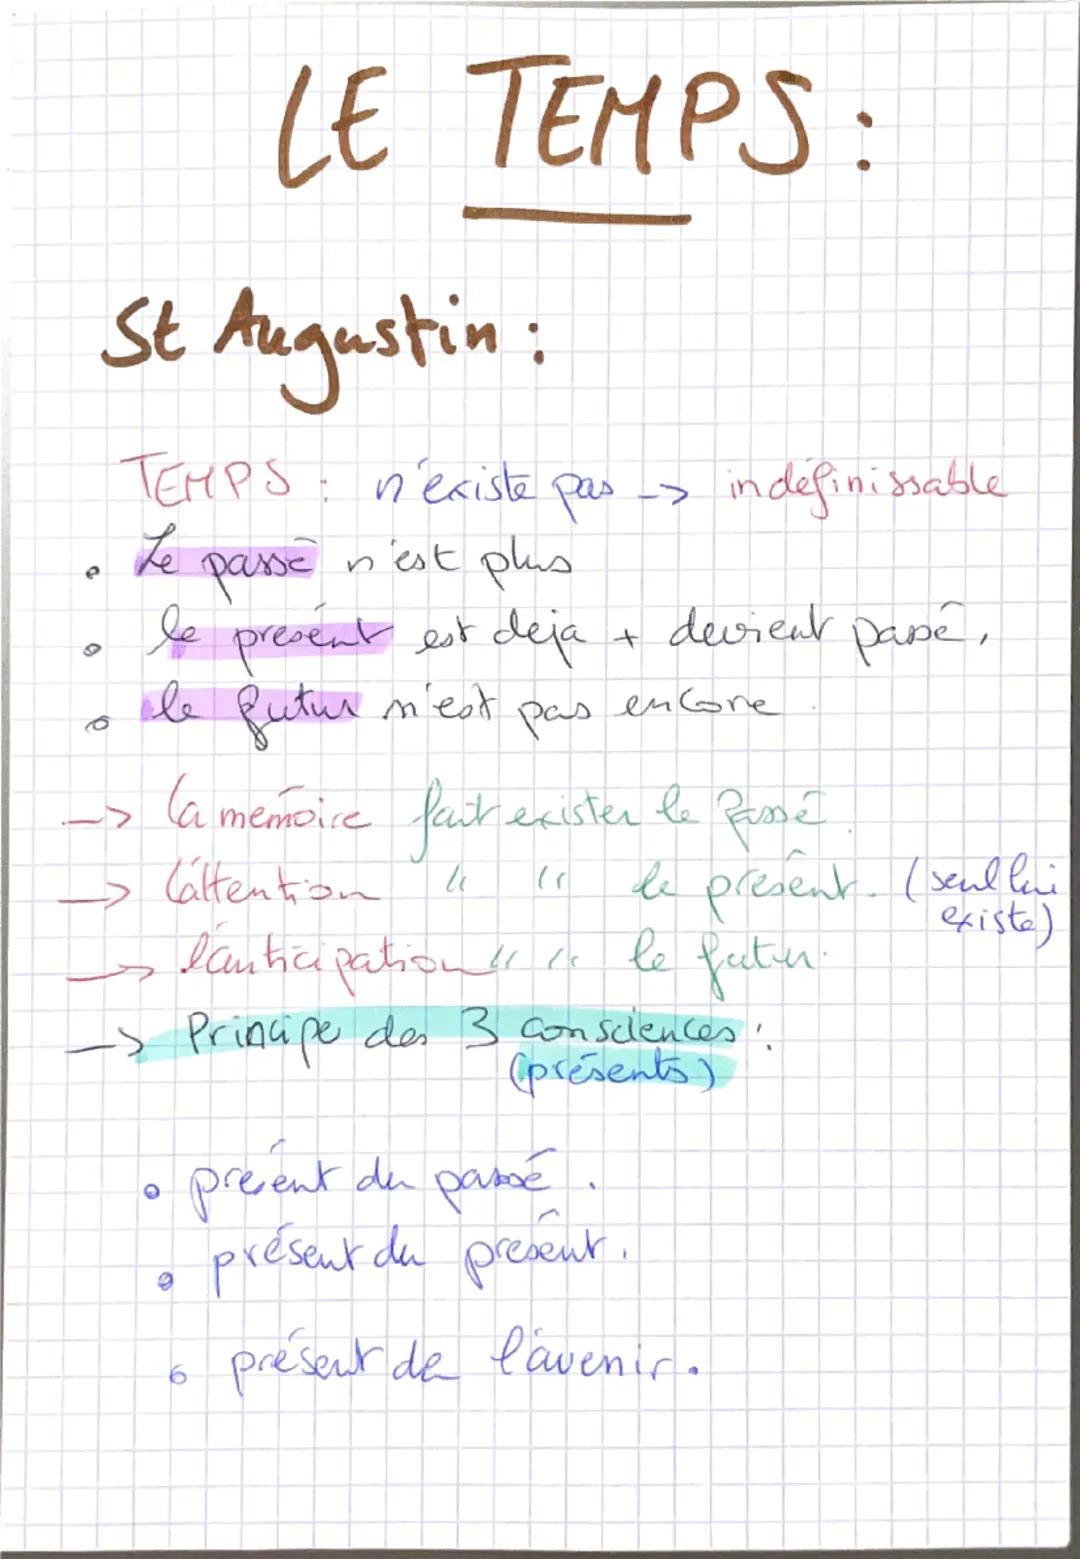 LE TEMPS :
St Augustin :
TEMPS : n'existe pas -> indéfinissable
• Le passé n'est plus
• le présent est deja + devient passé.
• le futur n'est pas encore.
-> la mémoire fait exister le passé.
-> l'attention " " le présent. (seul lui
existe)
-> l'anticipation " " le futur.
-> Principe des 3 consciences :
(présents)
• présent du passé.
• présent du présent.
• présent de l'avenir.